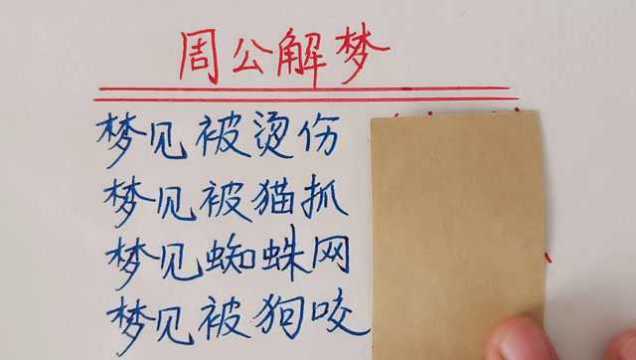 周公解梦
梦见被烫伤
梦见被猫抓
梦见蜘蛛网
梦见被狗咬